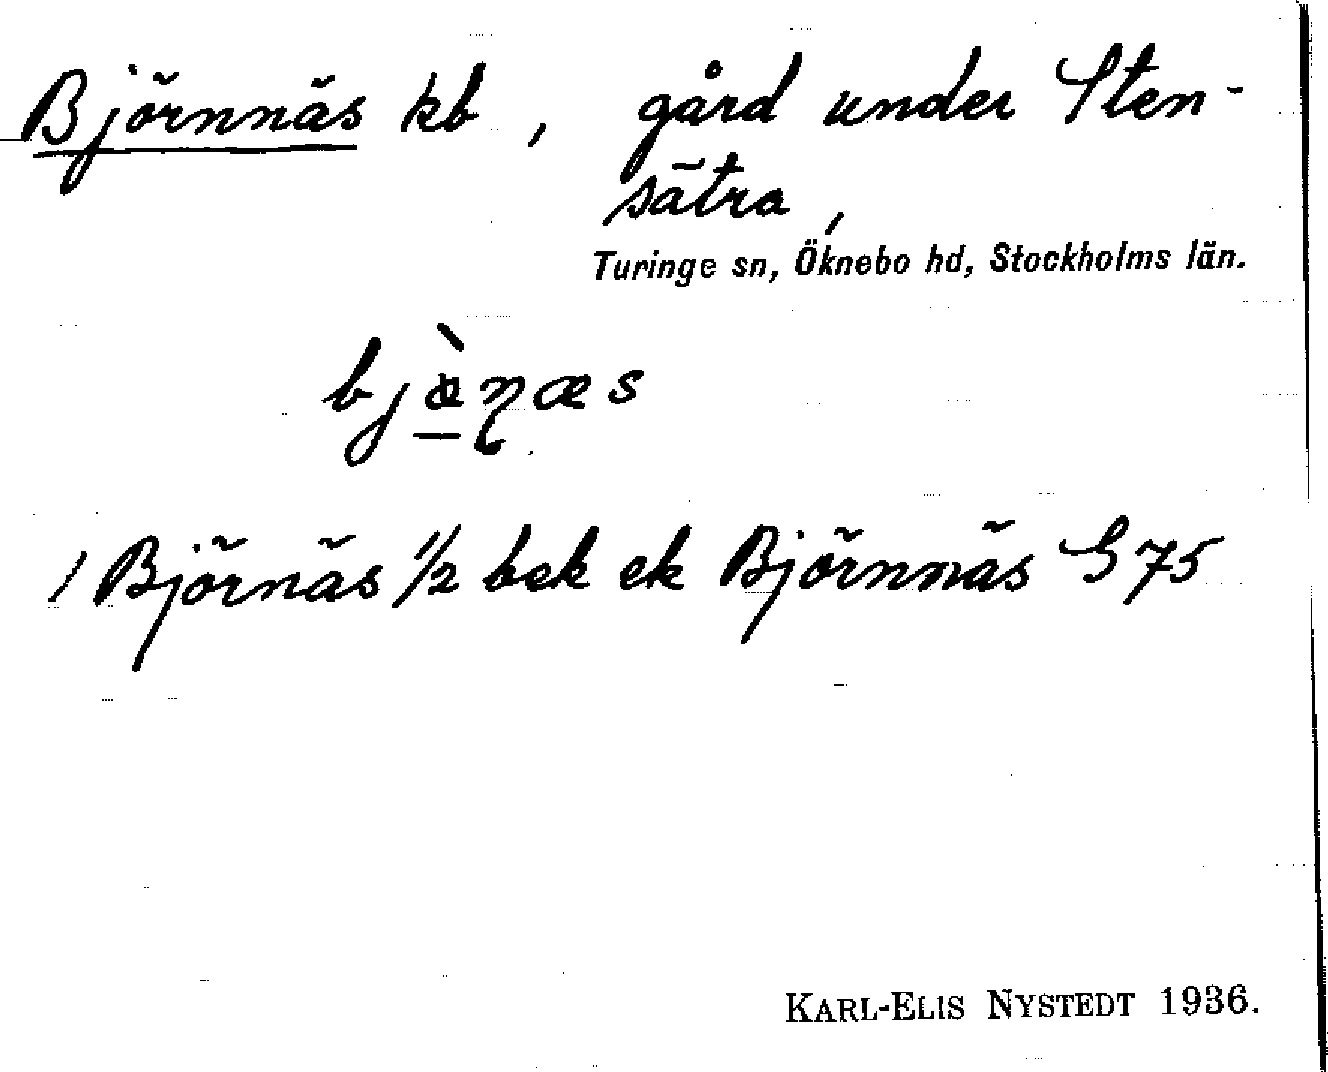 Björnnäs kb, gård under Sten-
sätra,
Turinge sn, Öknebo hd, Stockholms län.
bjὰ̱ɳæs
1 Björnäs 1/2 bek ek Björnnäs G 75
KARL-ELIS NYSTEDT 1936.